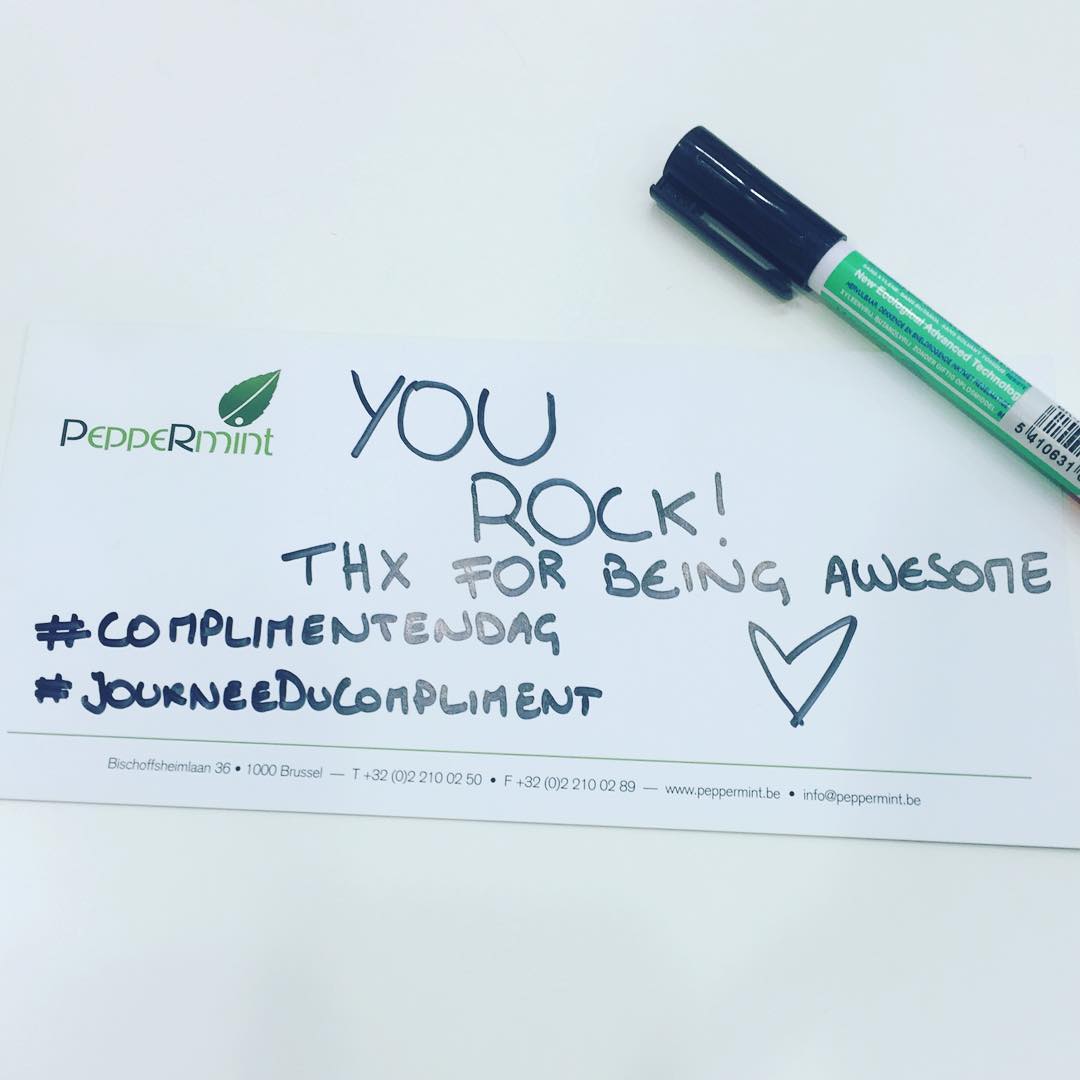 PEPPERMINT
YOU
ROCK!
THX FOR BEING AWESOME
#COMPLIMENTENDAG
#JOURNEEDUCOMPLIMENT
Bischoffsheimlaan 36 • 1000 Brussel — T +32 (0)2 210 02 50 • F +32 (0)2 210 02 89 — www.peppermint.be • info@peppermint.be
New Ecological Advanced Technolog
5 410631